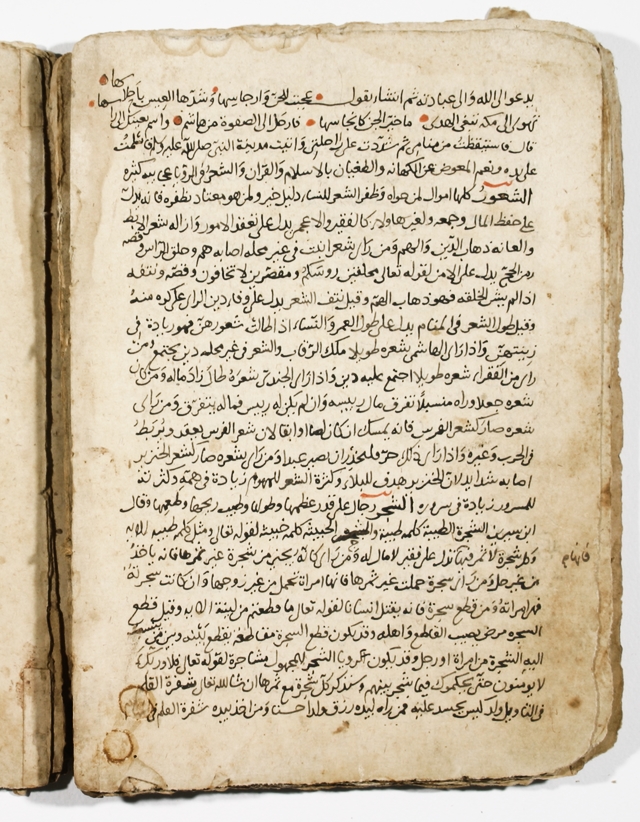 يدعو الى الله والى عبادته ثم انشار يقول عجبت للجن وارجاسها وشدها العيس باحلاسها
تهوى الى مكة تبغى الهدى ما خير الجن كانجاسها فارحل الى الصفوة من هاشم واسم بعينك الى راسها
قال فاستيقظت من منامى ثم شددت على راحلتى واتيت مدينة النبى صلى الله عليه وسلم فاسلمت
على يده ونعم المعوض عن الكهانه والطغيان بالاسلام والقران والشعر فى الرؤيا
الشعور كلها اموال لمن حواه وظفر الشعر للنسا دليل خير ولمن هو معتاد بظفره فانه يدل
على حفظ المال وجمعه ولغير هاولاء كالفقير والاعجمى يدل على تعقد الامور وازالة شعر الابط
والعانه ذهاب الدين والهم ومن راى شعرا نبت فى غير محله اصابه هم وحلق الراس وقصه
زمن الحج يدل على الامن لقوله تعالى محلقين روسكم ومقصرين لا تخافون وقصه ونتفه
اذا لم يشن الخلقه فهو ذهاب الهم وقيل نتف الشعر يدل على وفا دين الراى على كره منه
وقيل طول الشعر فى المنام يدل على طول العمر والنساء اذا طالت شعورهن فهو زيادة فى
زينتهن واذا راى الهاشمى شعره طويلا ملك الرقاب والشعر فى غير محله دين يجتمع ومن
راى من الفقراء شعره طويلا اجتمع عليه دين واذا راى الجندى شعره طال زاد ماله ومن كان
شعره جعلا وراه منسبلا تفرق مال رييسه وان لم يكن له رييس فماله يتفرق ومن راى
شعره صار كشعر الفرس فانه يمسك ان كان لصا او ابقا لان شعر الفرس يعقد ويربط
فى الحرب وغيره واذا راى ذلك حر ولم يحذر ان يصير عبدا ومن راى شعره صار كشعر الخنزير
اصابه شدايد لان الخنزير هدف للبلاء وكثرة الشعر للمهموم زيادة فى همه وكثرته
للمسرور زيادة فى سروره الشجر رجال على قدر عظمها وطولها وطيب ريحها وطعمها وقال
ابن سيرين الشجرة الطيبة كلمة طيبة والشجرة الخبيثة كلمة خبيثة لقوله تعالى ومثل كلمة طيبة الايه
وكل شجرة لا ثمر فيها تدل على فقير لا مال له ومن راى كانه يجنى من شجرة غير ثمرها فانه ياخذ
من غير حل ومن راى شجرة حملت غير ثمرها فانها امراة تحمل من غير زوجها وان كانت شجرة له
فهى امراته ومن قطع شجرة فانه يقتل انسانا لقوله تعالى ما قطعتم من لينة الايه وقيل قطع
الشجره مرض يصيب القاطع واهله وقد يكون قطع الشجرة مقاطعه
اليه الشجرة من امراة او رجل وقد يكون الشجر للمجهول مشاجرة لقوله تعالى فلا وربك
لا يومنون حتى يحكموك فيما شجر بينهم وسنذكر كل شجرة مع ثمرها ان شا الله تعالى شفرة القلم
فى التاويل ولد ليس يحسد عليه فمن راه بيده رزق ولدا حسنا ومن اخذ بيده شفرة القلم فى